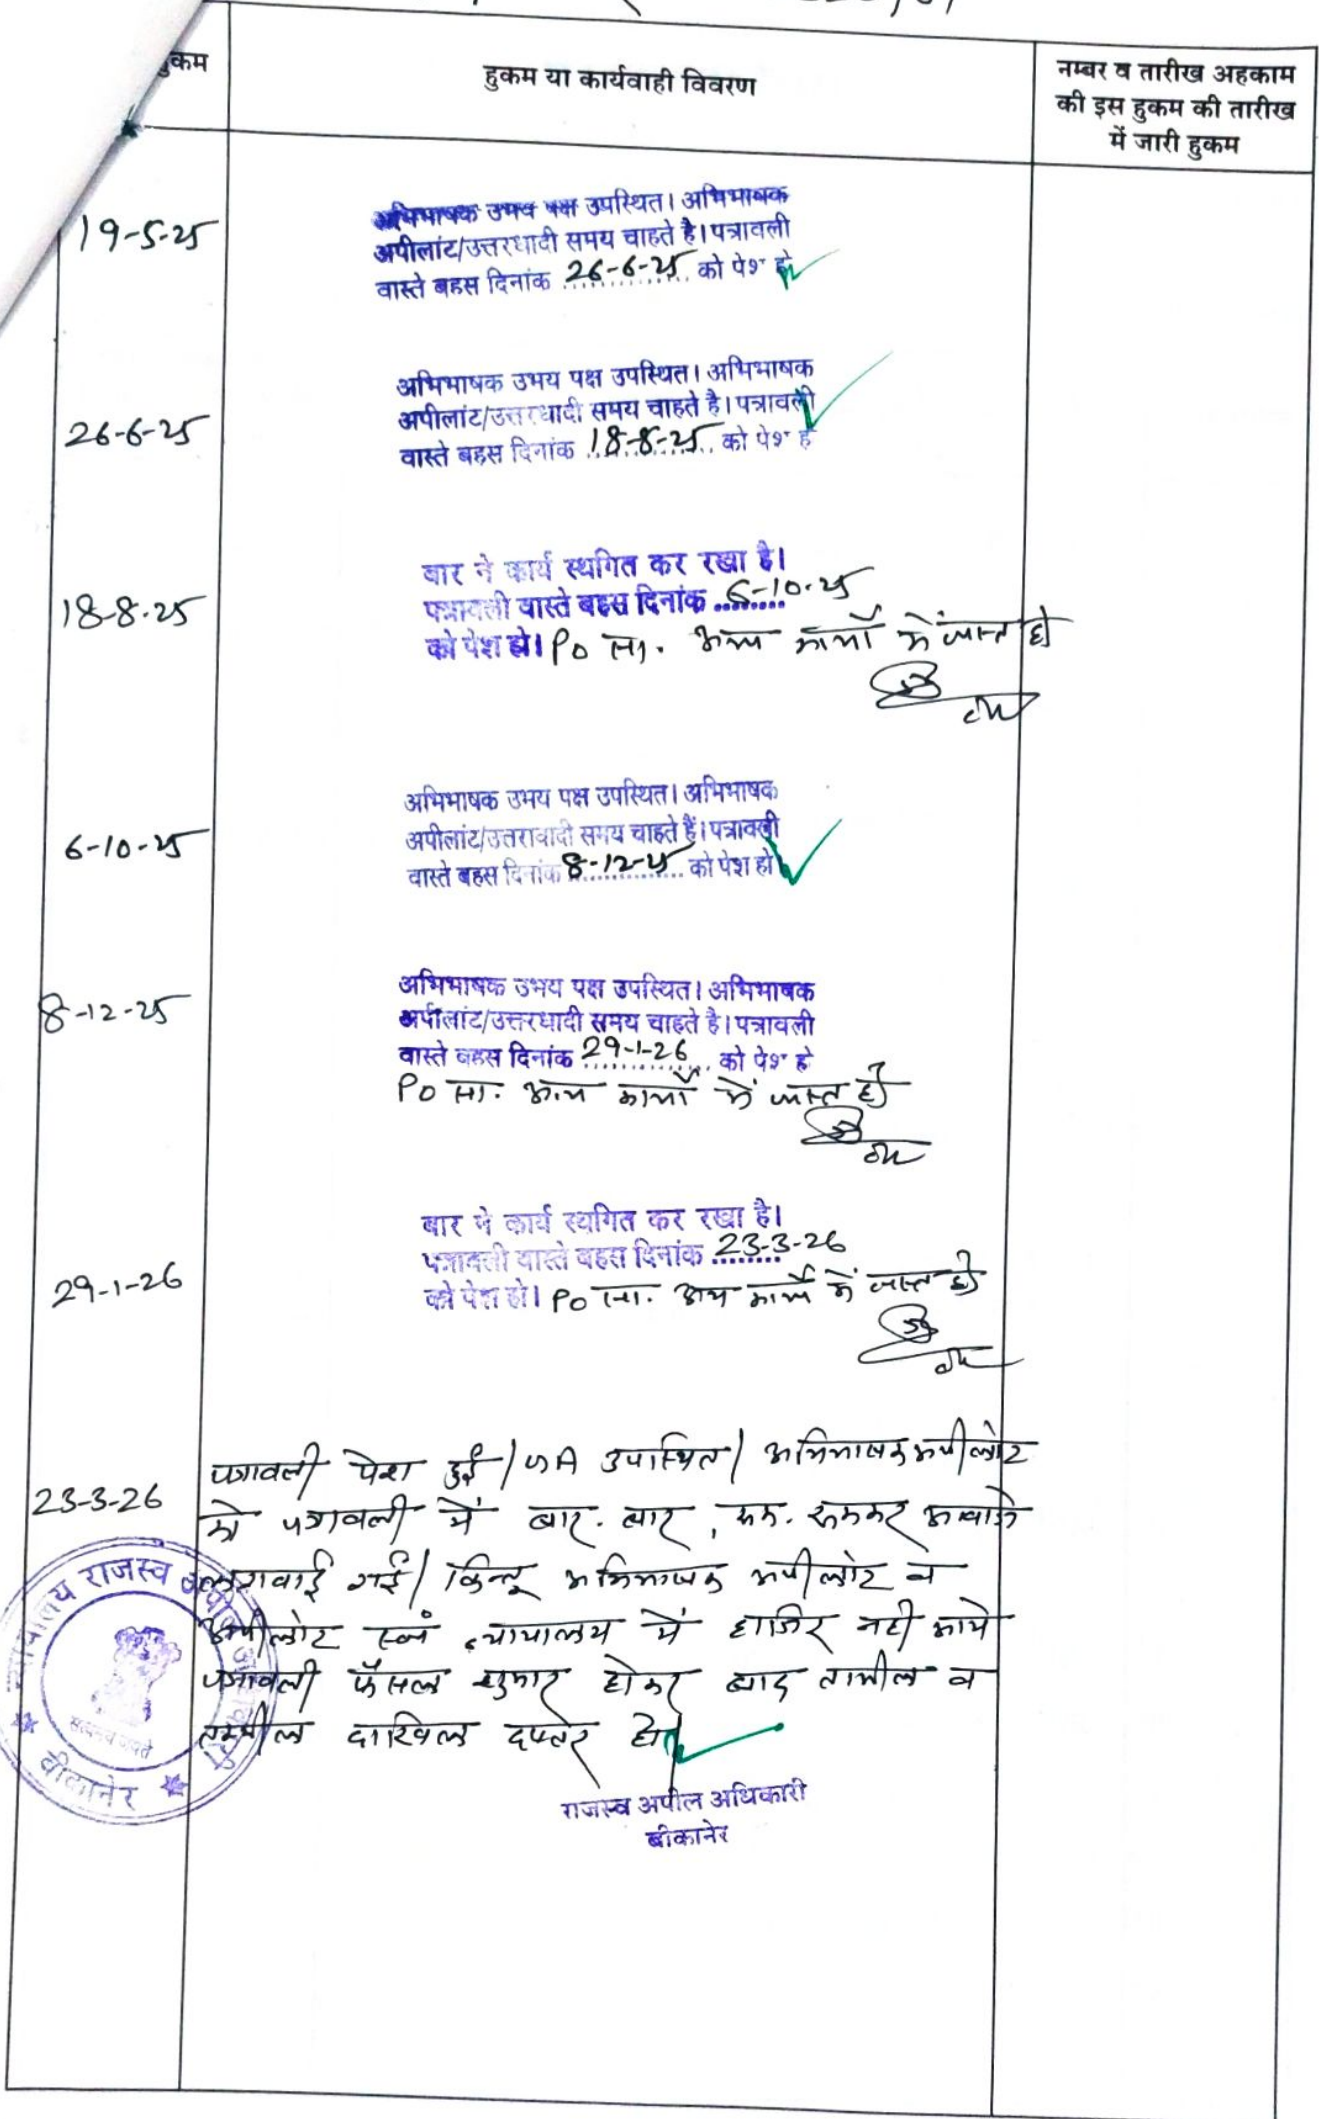 हुकम
हुकम या कार्यवाही विवरण
नम्बर व तारीख अहकाम
की इस हुकम की तारीख
में जारी हुकम
19-5-25
अभिभाषक उभय पक्ष उपस्थित। अभिभाषक
अपीलांट/उत्तरधादी समय चाहते है। पत्रावली
वास्ते बहस दिनांक 26-6-25 को पेश हो
26-6-25
अभिभाषक उभय पक्ष उपस्थित। अभिभाषक
अपीलांट/उत्तरधादी समय चाहते है। पत्रावली
वास्ते बहस दिनांक 18-8-25 को पेश हो
18-8-25
बार ने कार्य स्थगित कर रखा है।
पत्रावली वास्ते बहस दिनांक 6-10-25
को पेश हो। PO सा. अन्य कार्यों में व्यस्त है।
6-10-25
अभिभाषक उभय पक्ष उपस्थित। अभिभाषक
अपीलांट/उत्तरावादी समय चाहते हैं। पत्रावली
वास्ते बहस दिनांक 8-12-25 को पेश हो
8-12-25
अभिभाषक उभय पक्ष उपस्थित। अभिभाषक
अपीलांट/उत्तरधादी समय चाहते है। पत्रावली
वास्ते बहस दिनांक 29-1-26 को पेश हो
PO सा. अन्य कार्यों में व्यस्त है।
29-1-26
बार ने कार्य स्थगित कर रखा है।
पत्रावली वास्ते बहस दिनांक 23-3-26
को पेश हो। PO सा. अन्य कार्यों में व्यस्त है।
23-3-26
पत्रावली पेश हुई। उपस्थित। अभिभाषक अपीलांट
को पत्रावली में बार-बार, रुक-रुककर आवाजे
लगवाई गई। किन्तू अभिभाषक अपीलांट व
अपीलांट स्वयं न्यायालय में हाजिर नही आये
पत्रावली फैसल शुमार होकर बाद तामील व
तकमील दाखिल दफ्तर हो।
न्यायालय राजस्व अपील
सत्यमेव जयते
बीकानेर
राजस्व अपील अधिकारी
बीकानेर